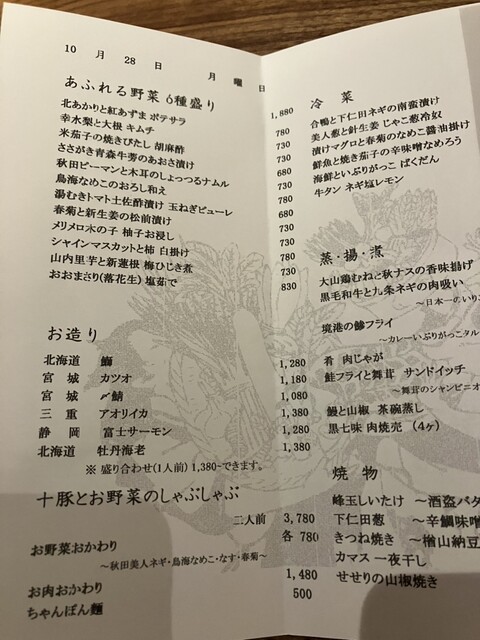 10 月 28 日 月 曜 日
あふれる野菜 6種盛り 1,880
北あかりと紅あずま ポテサラ 780
幸水梨と大根 キムチ 730
米茄子の焼きびたし 胡麻酢 730
ささがき青森牛蒡のあおさ漬け 730
秋田ピーマンと木耳のしょっつるナムル 780
鳥海なめこのおろし和え 680
湯むきトマト土佐酢漬け 玉ねぎピューレ 730
春菊と新生姜の松前漬け 730
メリメロ木の子 柚子お浸し 730
シャインマスカットと柿 白掛け 780
山内里芋と新蓮根 梅ひじき煮 730
おおまさり(落花生) 塩茹で 830
お造り
北海道 鰤 1,280
宮 城 カツオ 1,180
宮 城 〆鯖 1,080
三 重 アオリイカ 1,380
静 岡 富士サーモン 1,280
北海道 牡丹海老 1,380
※ 盛り合わせ(1人前) 1,380~できます。
十豚とお野菜のしゃぶしゃぶ
二人前 3,780
お野菜おかわり 各 780
~秋田美人ネギ・鳥海なめこ・なす・春菊~
お肉おかわり 1,480
ちゃんぽん麺 500
冷 菜
合鴨と下仁田ネギの南蛮漬け
美人葱と針生姜 じゃこ葱冷奴
漬けマグロと春菊のなめこ醤油掛け
鮮魚と焼き茄子の辛味噌なめろう
海鮮といぶりがっこ ばくだん
牛タン ネギ塩レモン
蒸・揚・煮
大山鶏むねと秋ナスの香味揚げ
黒毛和牛と九条ネギの肉吸い
~日本一のいり
境港の鯵フライ
~カレーいぶりがっこタル
肴 肉じゃが
鮭フライと舞茸 サンドイッチ
~舞茸のシャンピニオ
鰻と山椒 茶碗蒸し
黒七味 肉焼売 (4ヶ)
焼 物
峰玉しいたけ ~酒盗バタ
下仁田葱 ~辛鯛味噌
きつね焼き ~檜山納豆
カマス 一夜干し
せせりの山椒焼き